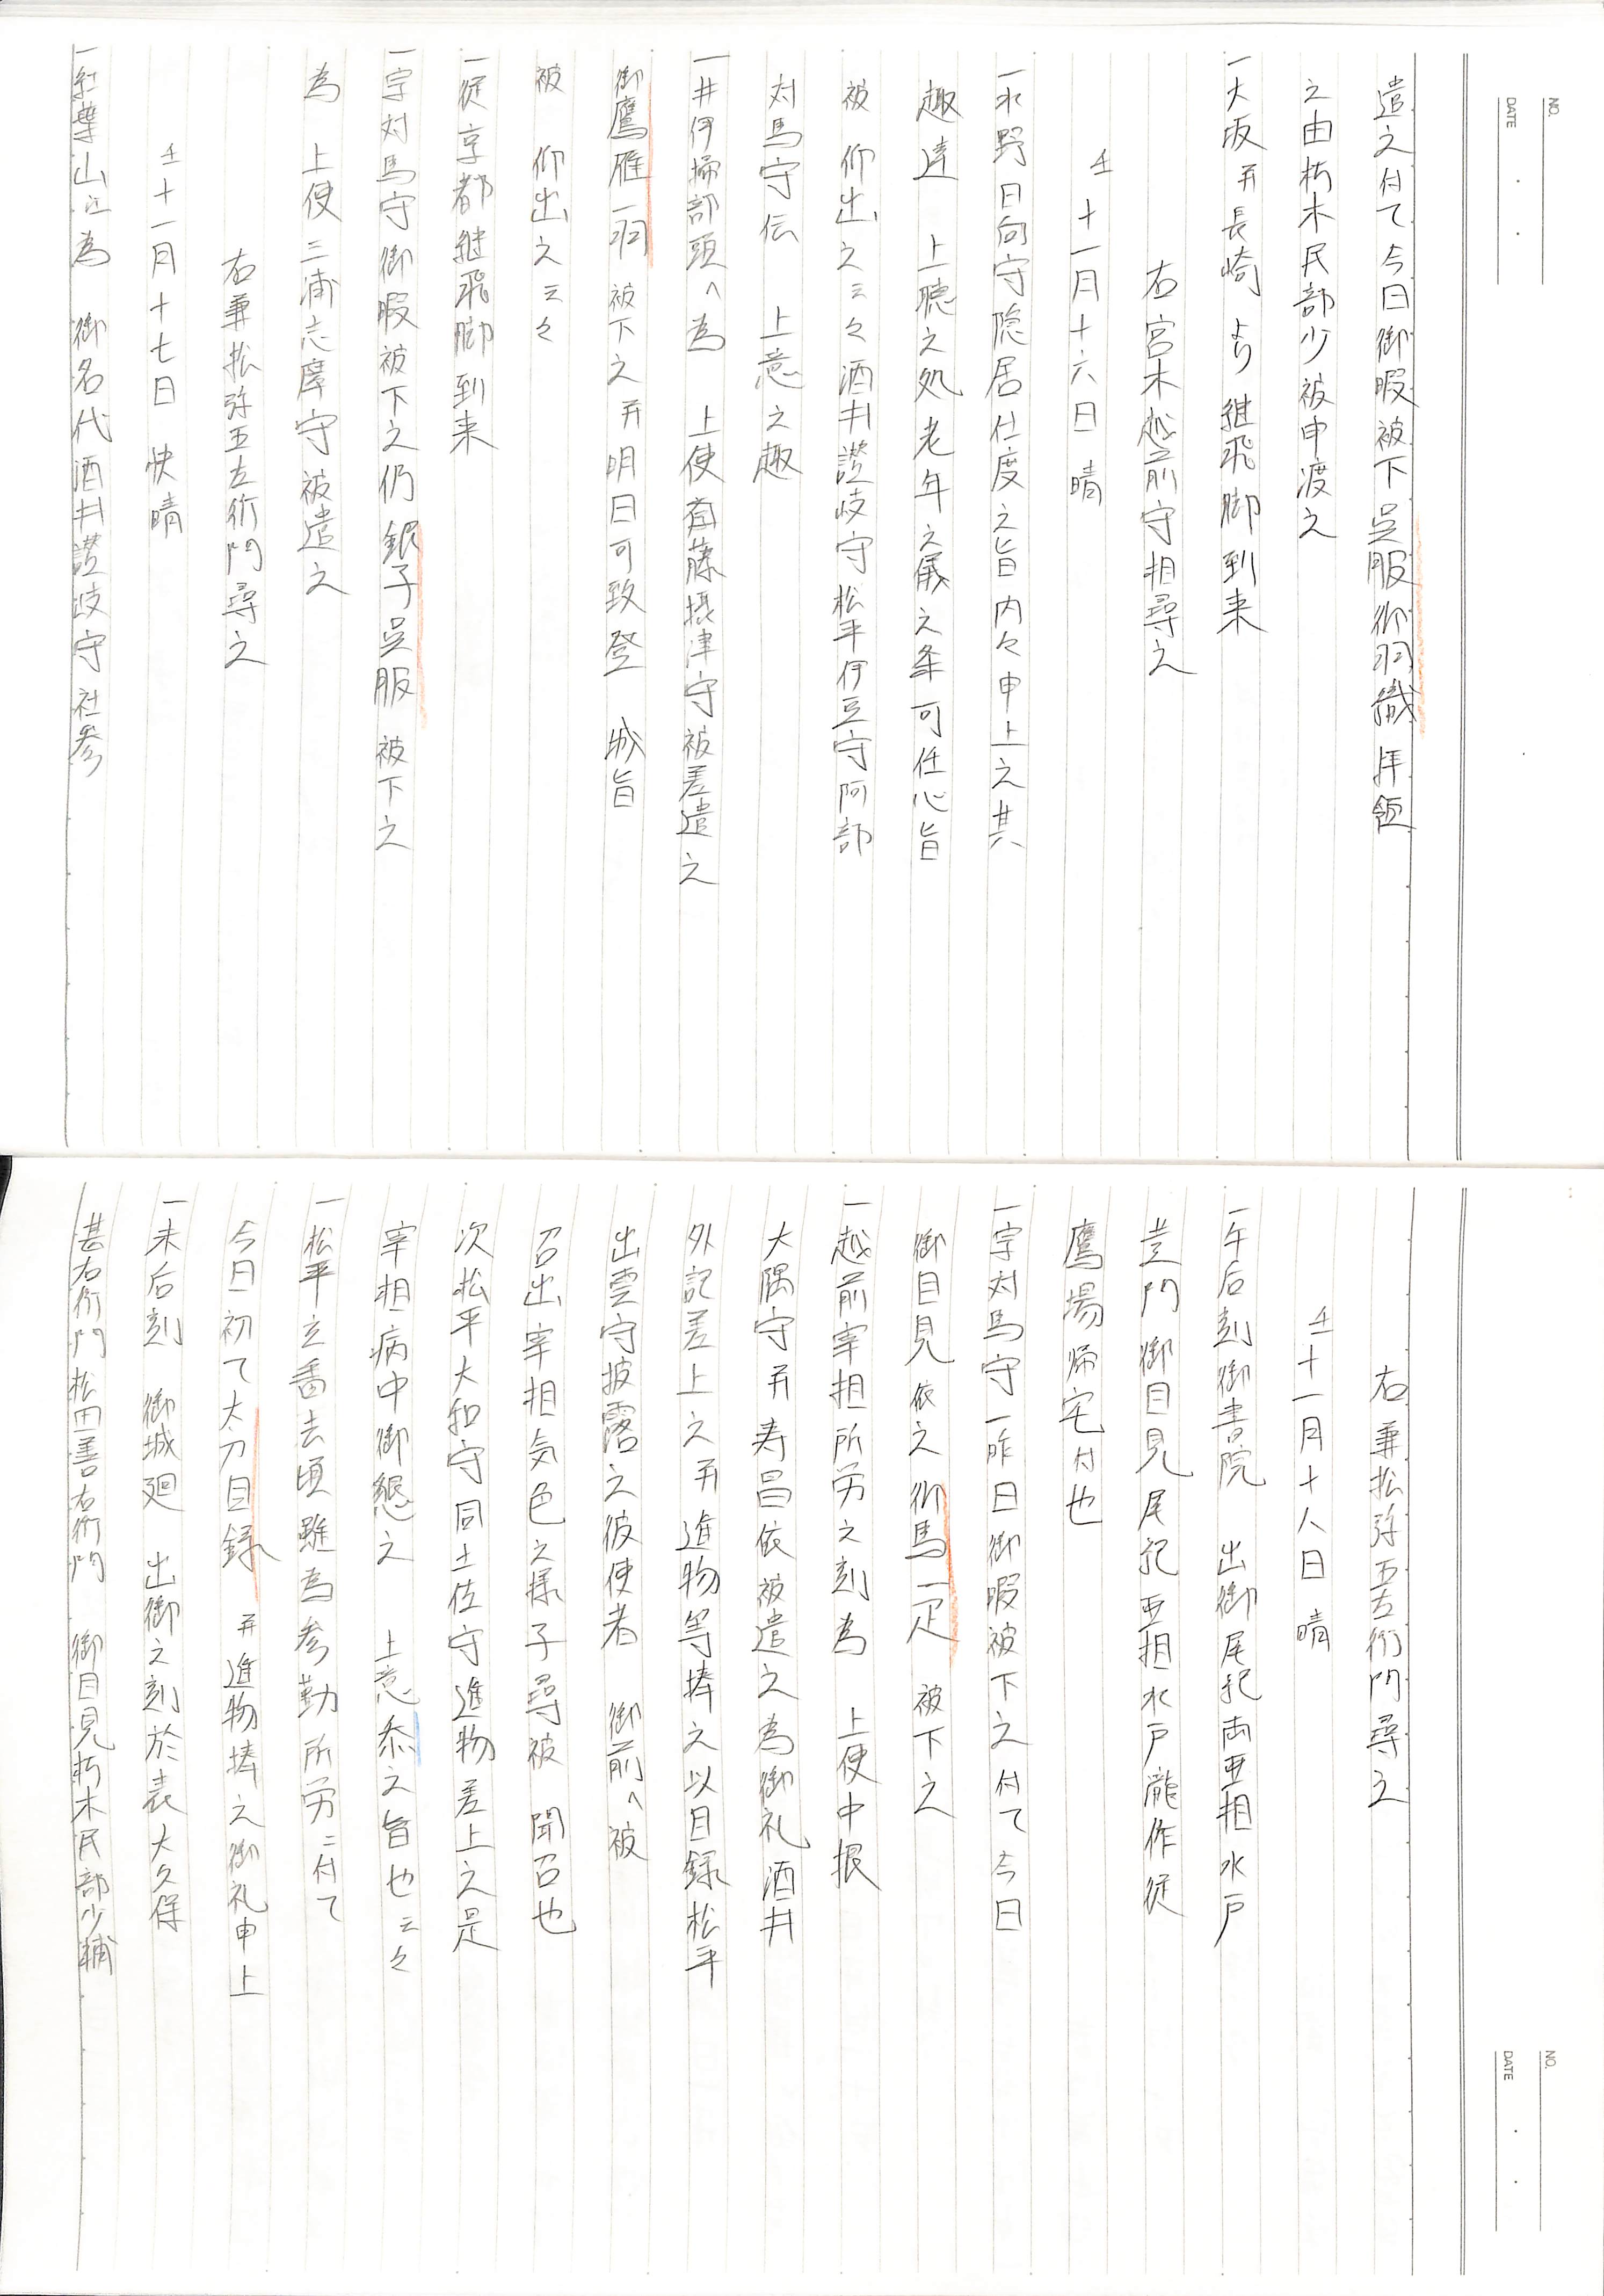 NO.
DATE
遣之付て今日御暇被下呉服御羽織拝領
之由朽木民部少被申渡之
一大坂并長崎より継飛脚到来
右宮木越前守相尋之
壬十一月十六日 晴
一水野日向守隠居仕度之旨内々申上之其
趣達 上聴之処老年之儀之条可任心旨
被 仰出之云々酒井讃岐守松平伊豆守阿部
対馬守伝 上意之趣
一井伊掃部頭へ為 上使斎藤摂津守被差遣之
御鷹雁一羽被下之并明日可致登 城旨
被 仰出之云々
一従京都継飛脚到来
一宗対馬守御暇被下之仍銀子呉服被下之
為 上使三浦志摩守被遣之
右兼松弥五左衛門尋之
壬十一月十七日 快晴
一紅葉山江為 御名代酒井讃岐守社参
NO.
DATE
右兼松弥五左衛門尋之
壬十一月十八日 晴
一午后刻御書院 出御尾紀両亜相水戸
黄門御目見尾紀亜相水戸龍作従
鷹場帰宅付也
一宗対馬守一昨日御暇被下之付て今日
御目見依之御馬一疋 被下之
一越前宰相所労之刻為 上使中根
大隅守并寿昌依被遣之為御礼酒井
外記差上之并進物等捧之以目録松平
出雲守披露之彼使者 御前へ被
召出宰相気色之様子尋被 聞召也
次松平大和守同土佐守進物差上之是
宰相病中御懇之 上意忝之旨也云々
一松平主番去頃雖為参勤所労ニ付て
今日初て太刀目録 并進物捧之御礼申上
一未后刻 御城廻 出御之刻於表大久保
甚右衛門松田善右衛門 御目見朽木民部少輔